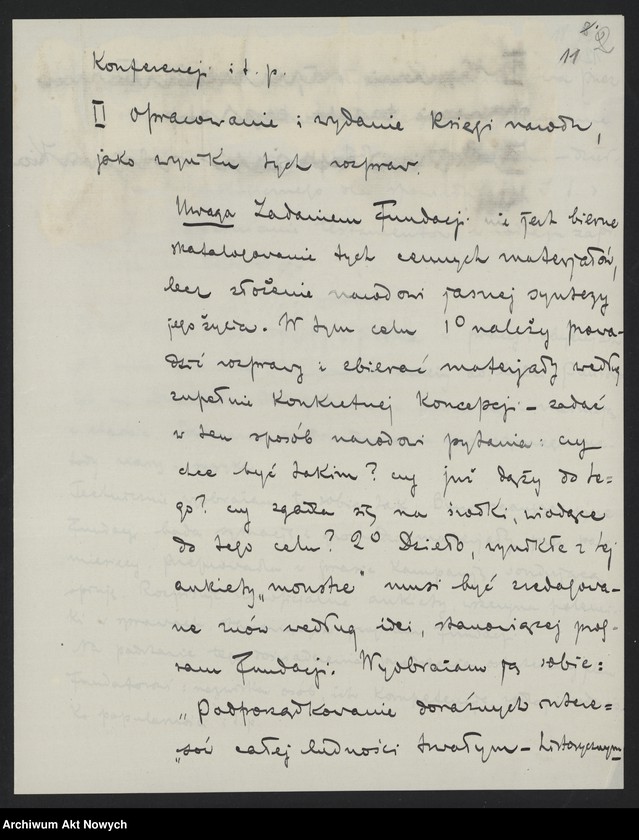 2
11
Konferencji i t. p.
II Opracowanie i wydanie Księgi narodu,
jako wyniku tych rozpraw.
Uwaga Zadaniem Fundacji nie jest bierne
skatalogowanie tych cennych materjałów,
lecz złożenie narodowi jasnej syntezy
jego życia. W tym celu 1º należy prowa-
dzić rozprawy i zbierać materjały według
zupełnie konkretnej koncepcji – zadać
w ten sposób narodowi pytania: czy
chce być takim? czy już dąży do te=
go? czy zgadza się na środki, wiodące
do tego celu? 2º Dzieło, wynikłe z tej
ankiety „monstre" musi być zredagowa-
ne znów według idei, stanowiącej prog-
ram Fundacji. Wyobrażam ją sobie:
„Podporządkowanie doraźnych intere=
„sów całej ludności trwałym – historycznym
Archiwum Akt Nowych